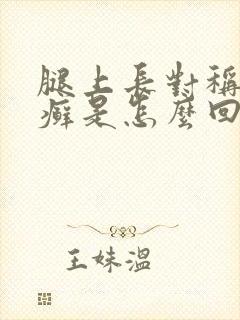 腿上長對稱
癬是怎麼回
王妹溫